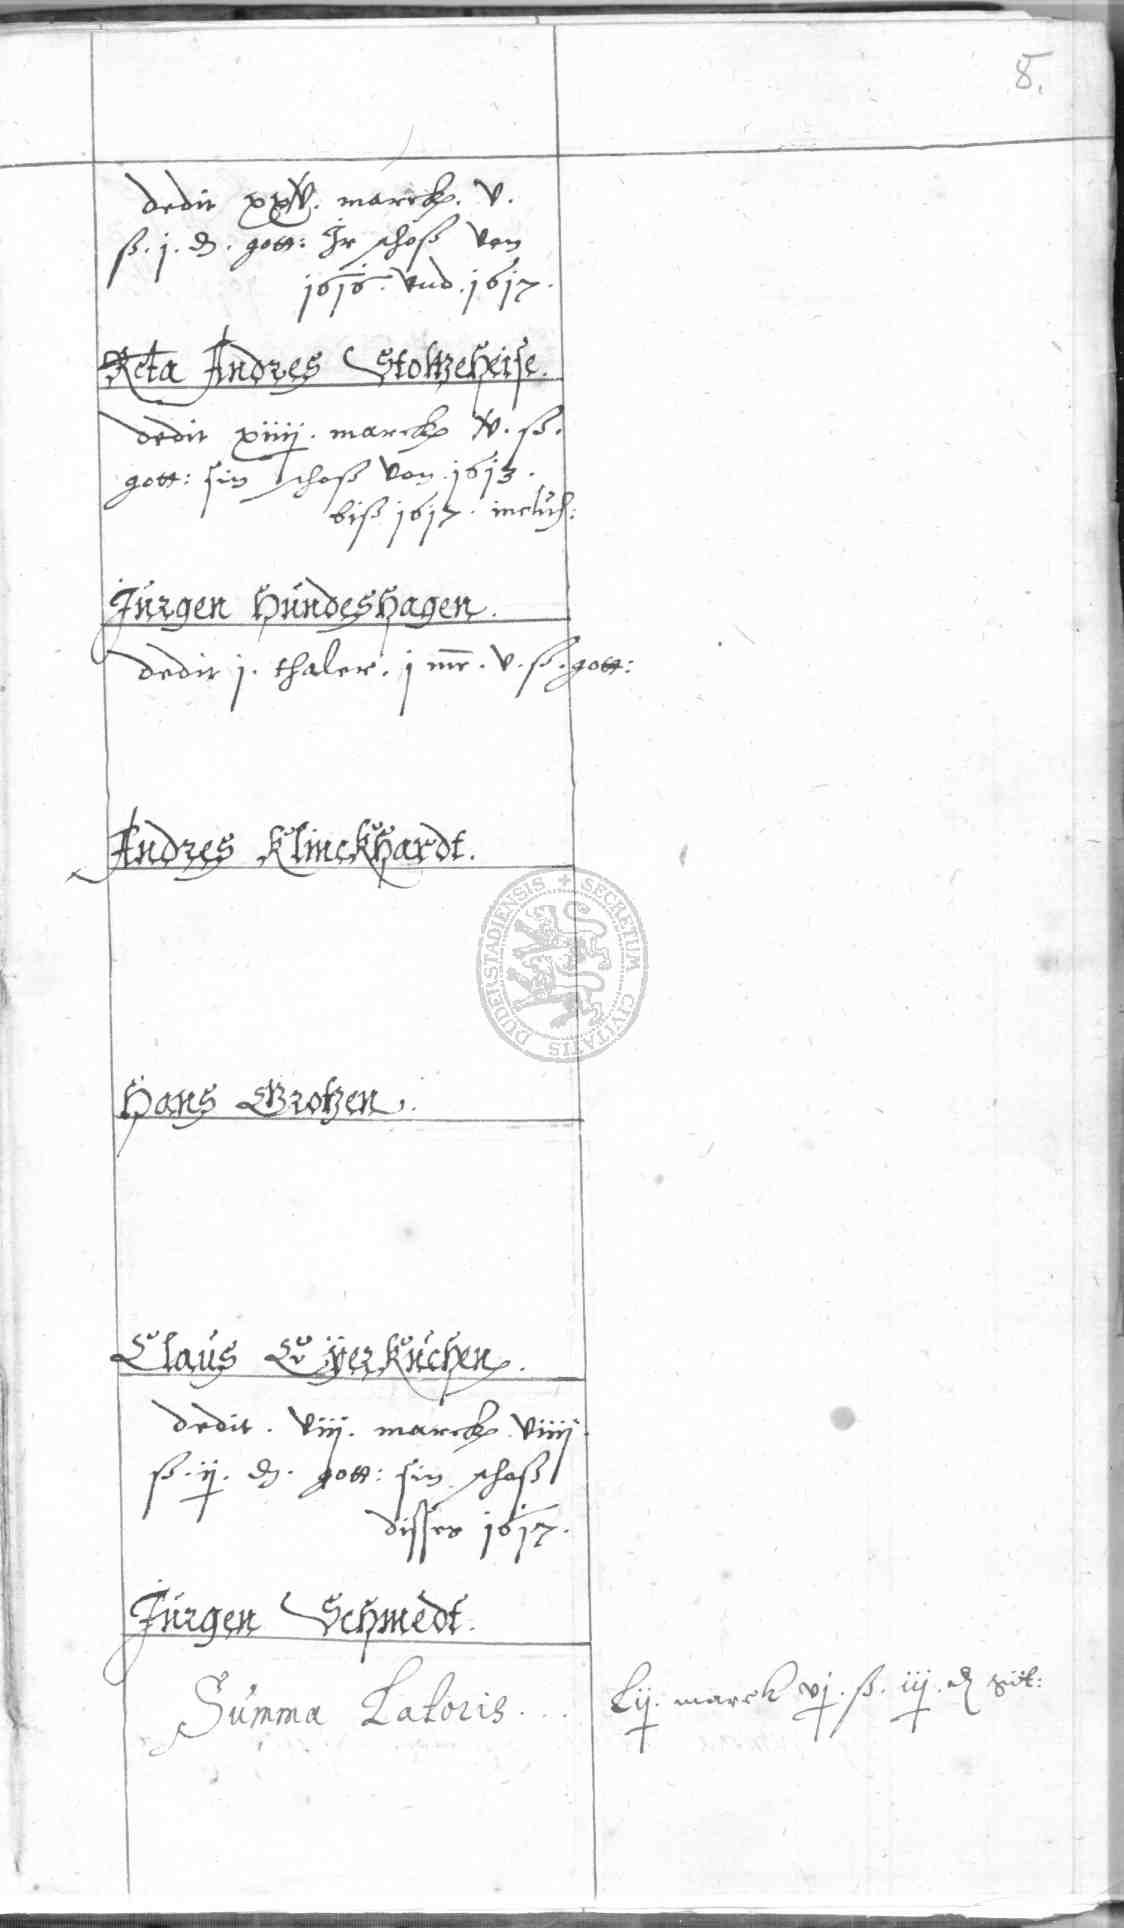 8.
dedit xxv. marck. v.
ß. j. d. gott: Ihr schoß von
1616. vnd. 1617.
Relicta Andres Stoltzeheise.
dedit xiiij. marck v. ß.
gott: sin schoß von. 1613.
biß 1617. inclus:
Jürgen Hundeshagen.
dedit j. thaler. j mr. v. ß. gott:
Andres Klinckhardt.
DUDERSTADIENSIS + SECRETUM CIVITATIS
Hans Grotzen.
Claus Eÿerkuchen.
dedit. viij. marck viiij.
ß. ij. d. gott: sin schoß
disses 1617.
Jürgen Schmedt.
Summa Latoris...
Lij. marck vj. ß. iij. d gött: